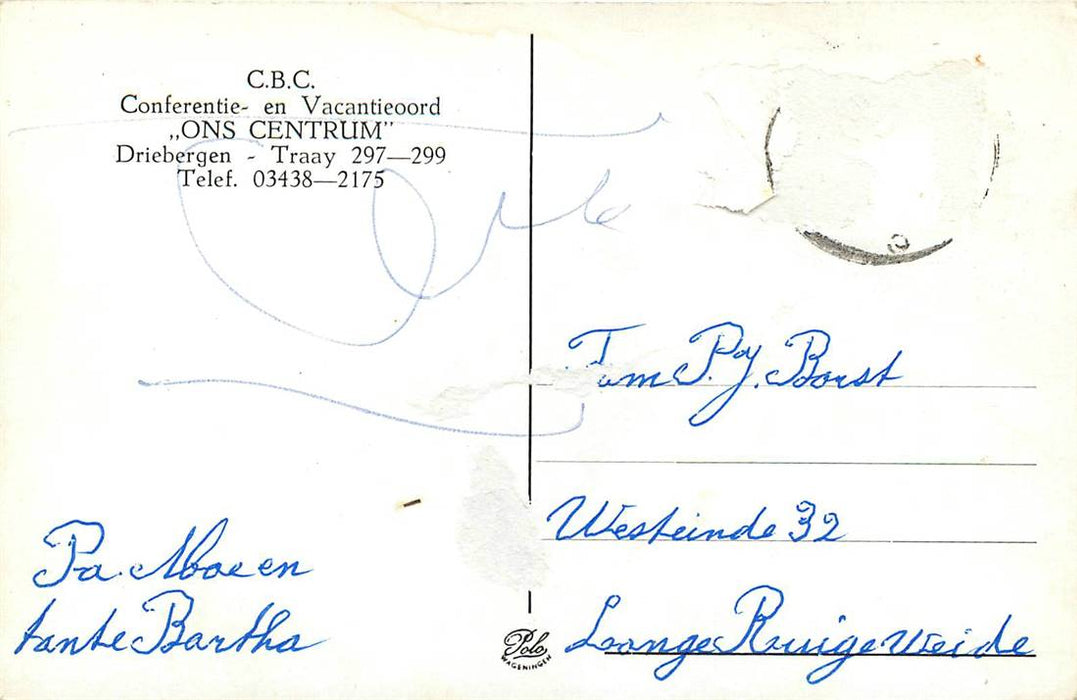 C.B.C.
Conferentie- en Vacantieoord
„ONS CENTRUM”
Driebergen - Traay 297—299
Telef. 03438—2175
Fam P.J. Borst
Westeinde 32
Lange Ruige Weide
Pa. Moe en
tante Bartha
Polo
WAGENINGEN